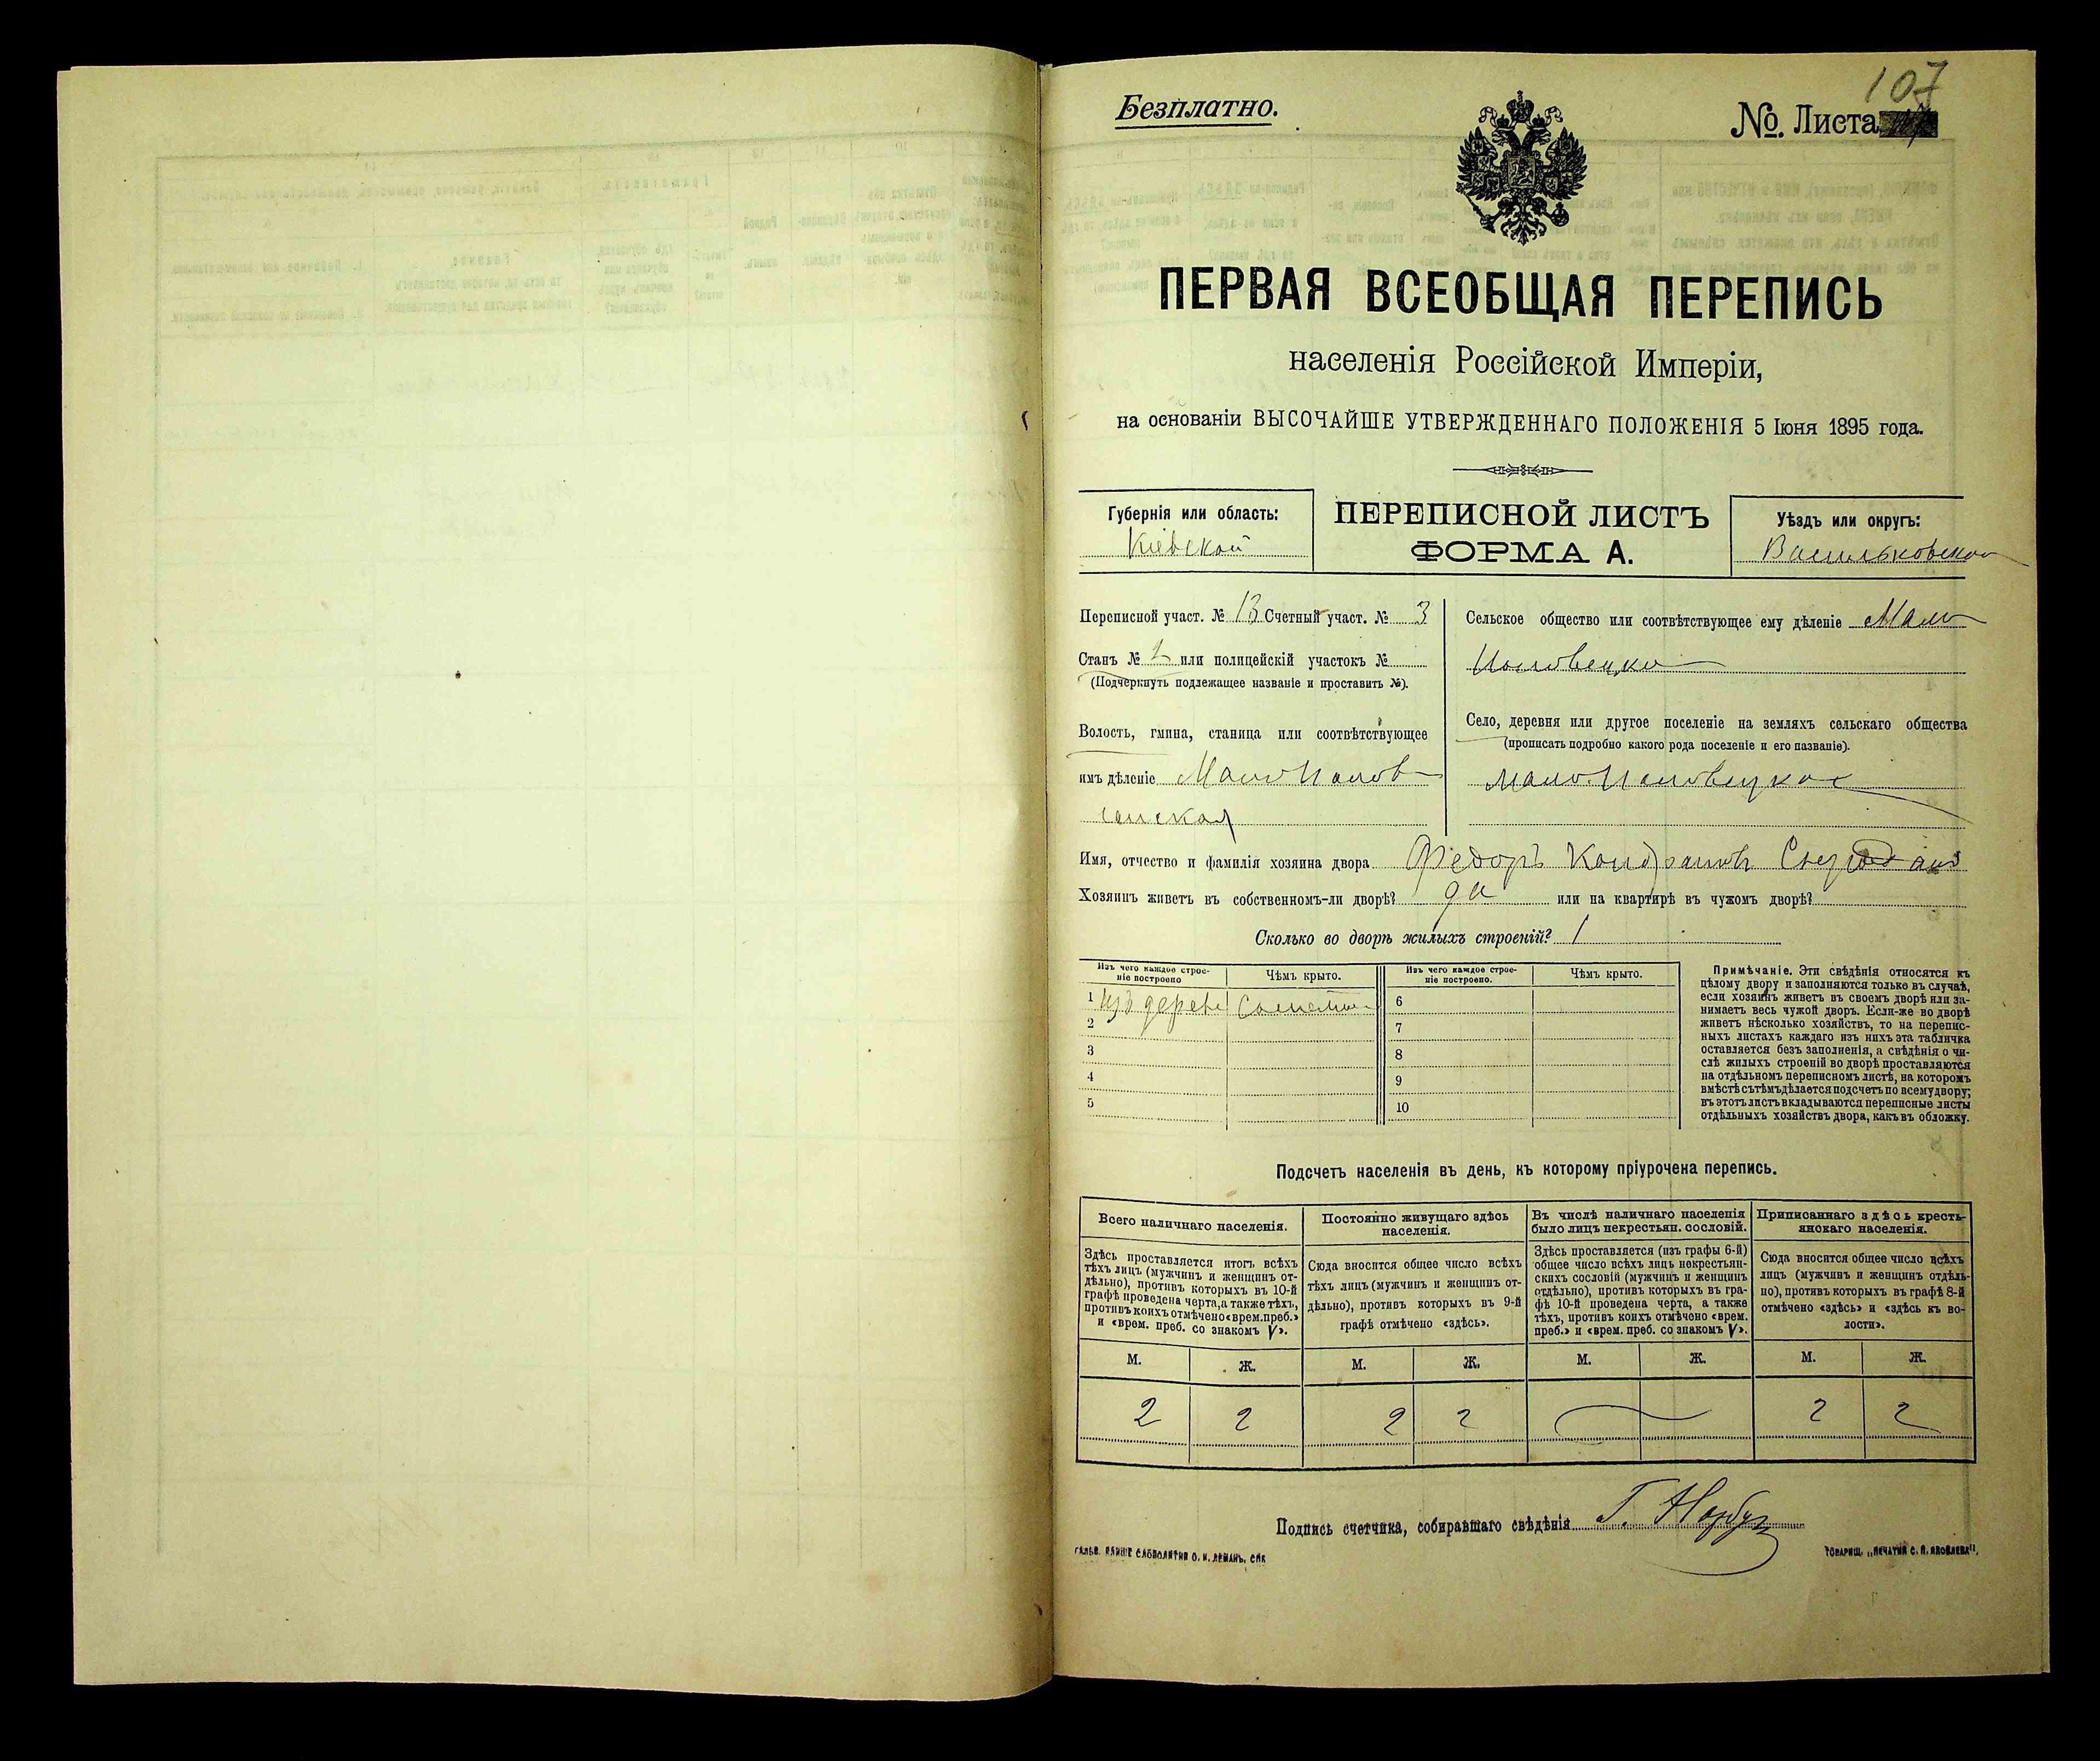 107
Безплатно.
№. Листа
ПЕРВАЯ ВСЕОБЩАЯ ПЕРЕПИСЬ
населенія Россійской Имперіи,
на основаніи ВЫСОЧАЙШЕ УТВЕРЖДЕННАГО ПОЛОЖЕНІЯ 5 Іюня 1895 года.
Губернія или область:
Кіевской
ПЕРЕПИСНОЙ ЛИСТЪ
ФОРМА А.
Уѣздъ или округъ:
Васильковской
Переписной участ. № 13 Счетный участ. № 3
Станъ № 2 или полицейскій участокъ №
(Подчеркнуть подлежащее названіе и проставить №).
Волость, гмина, станица или соотвѣтствующее
имъ дѣленіе
Сельское общество или соотвѣтствующее ему дѣленіе Мало
Село, деревня или другое поселеніе на земляхъ сельскаго общества
(прописать подробно какого рода поселеніе и его названіе).
Имя, отчество и фамилія хозяина двора Федоръ
Хозяинъ живетъ въ собственномъ-ли дворѣ? да или на квартирѣ въ чужомъ дворѣ?
Сколько во дворѣ жилыхъ строеній? 1
Изъ чего каждое строе-
ніе построено
Чѣмъ крыто.
Изъ чего каждое строе-
ніе построено.
Чѣмъ крыто.
1 изъ дерева
2
3
4
5
6
7
8
9
10
Примѣчаніе. Эти свѣдѣнія относятся къ
цѣлому двору и заполняются только въ случаѣ,
если хозяинъ живетъ въ своемъ дворѣ или за-
нимаетъ весь чужой дворъ. Если-же во дворѣ
живетъ нѣсколько хозяйствъ, то на перепис-
ныхъ листахъ каждаго изъ нихъ эта табличка
оставляется безъ заполненія, а свѣдѣнія о чи-
слѣ жилыхъ строеній во дворѣ проставляются
на отдѣльномъ переписномъ листѣ, на которомъ
вмѣстѣ съ тѣмъ дѣлается подсчетъ по всему двору;
въ этотъ листъ вкладываются переписные листы
отдѣльныхъ хозяйствъ двора, какъ въ обложку.
Подсчетъ населенія въ день, къ которому пріурочена перепись.
Всего наличнаго населенія.
Здѣсь проставляется итогъ всѣхъ
тѣхъ лицъ (мужчинъ и женщинъ от-
дѣльно), противъ которыхъ въ 10-й
графѣ проведена черта, а также тѣхъ,
противъ коихъ отмѣчено «врем. преб.»
и «врем. преб. со знакомъ V».
Постоянно живущаго здѣсь
населенія.
Сюда вносится общее число всѣхъ
тѣхъ лицъ (мужчинъ и женщинъ от-
дѣльно), противъ которыхъ въ 9-й
графѣ отмѣчено «здѣсь».
Въ числѣ наличнаго населенія
было лицъ некрестьян. сословій.
Здѣсь проставляется (изъ графы 6-й)
общее число всѣхъ лицъ некрестьян-
скихъ сословій (мужчинъ и женщинъ
отдѣльно), противъ которыхъ въ гра-
фѣ 10-й проведена черта, а также
тѣхъ, противъ коихъ отмѣчено «врем.
преб.» и «врем. преб. со знакомъ V».
Приписаннаго здѣсь кресть-
янскаго населенія.
Сюда вносится общее число всѣхъ
лицъ (мужчинъ и женщинъ отдѣль-
но), противъ которыхъ въ графѣ 8-й
отмѣчено «здѣсь» и «здѣсь къ во-
лости».
М. Ж. М. Ж. М. Ж. М. Ж.
2 2 2 2 2 2
Подпись счетчика, собиравшаго свѣдѣнія Г.
ТОВАРИЩ. „ПЕЧАТНЯ С. П. ЯКОВЛЕВА".